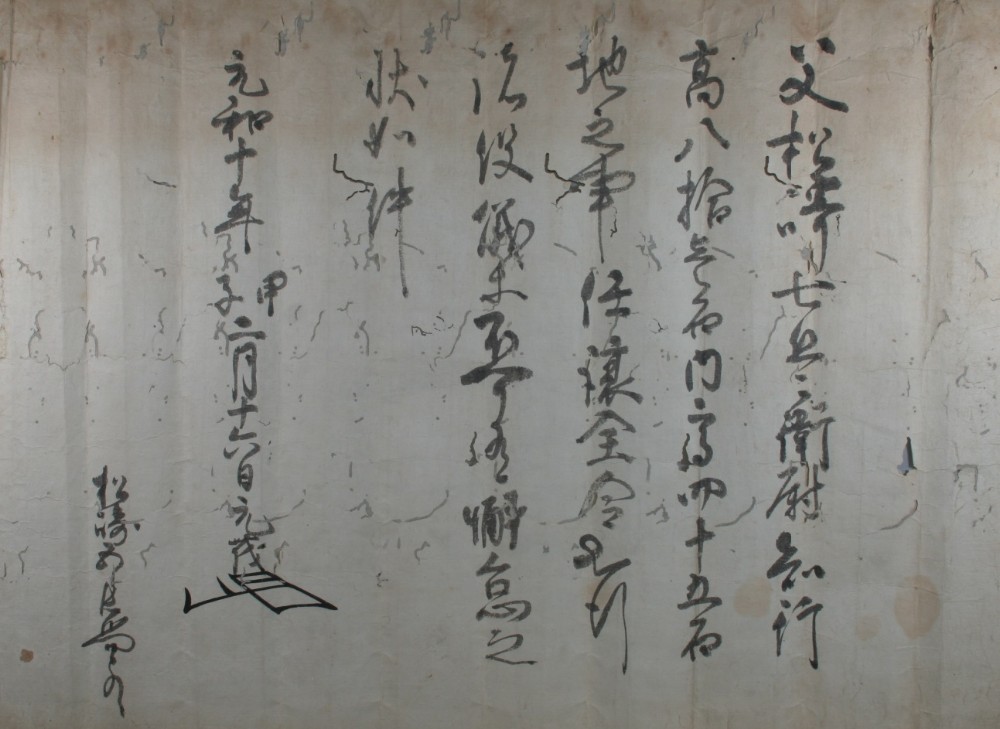 父松崎七兵衛尉知行
高八拾参石内高四十五石
地之事任譲全令知行
諸役儀等不可有懈怠之
状如件
元和十年甲子二月十六日元茂
松崎